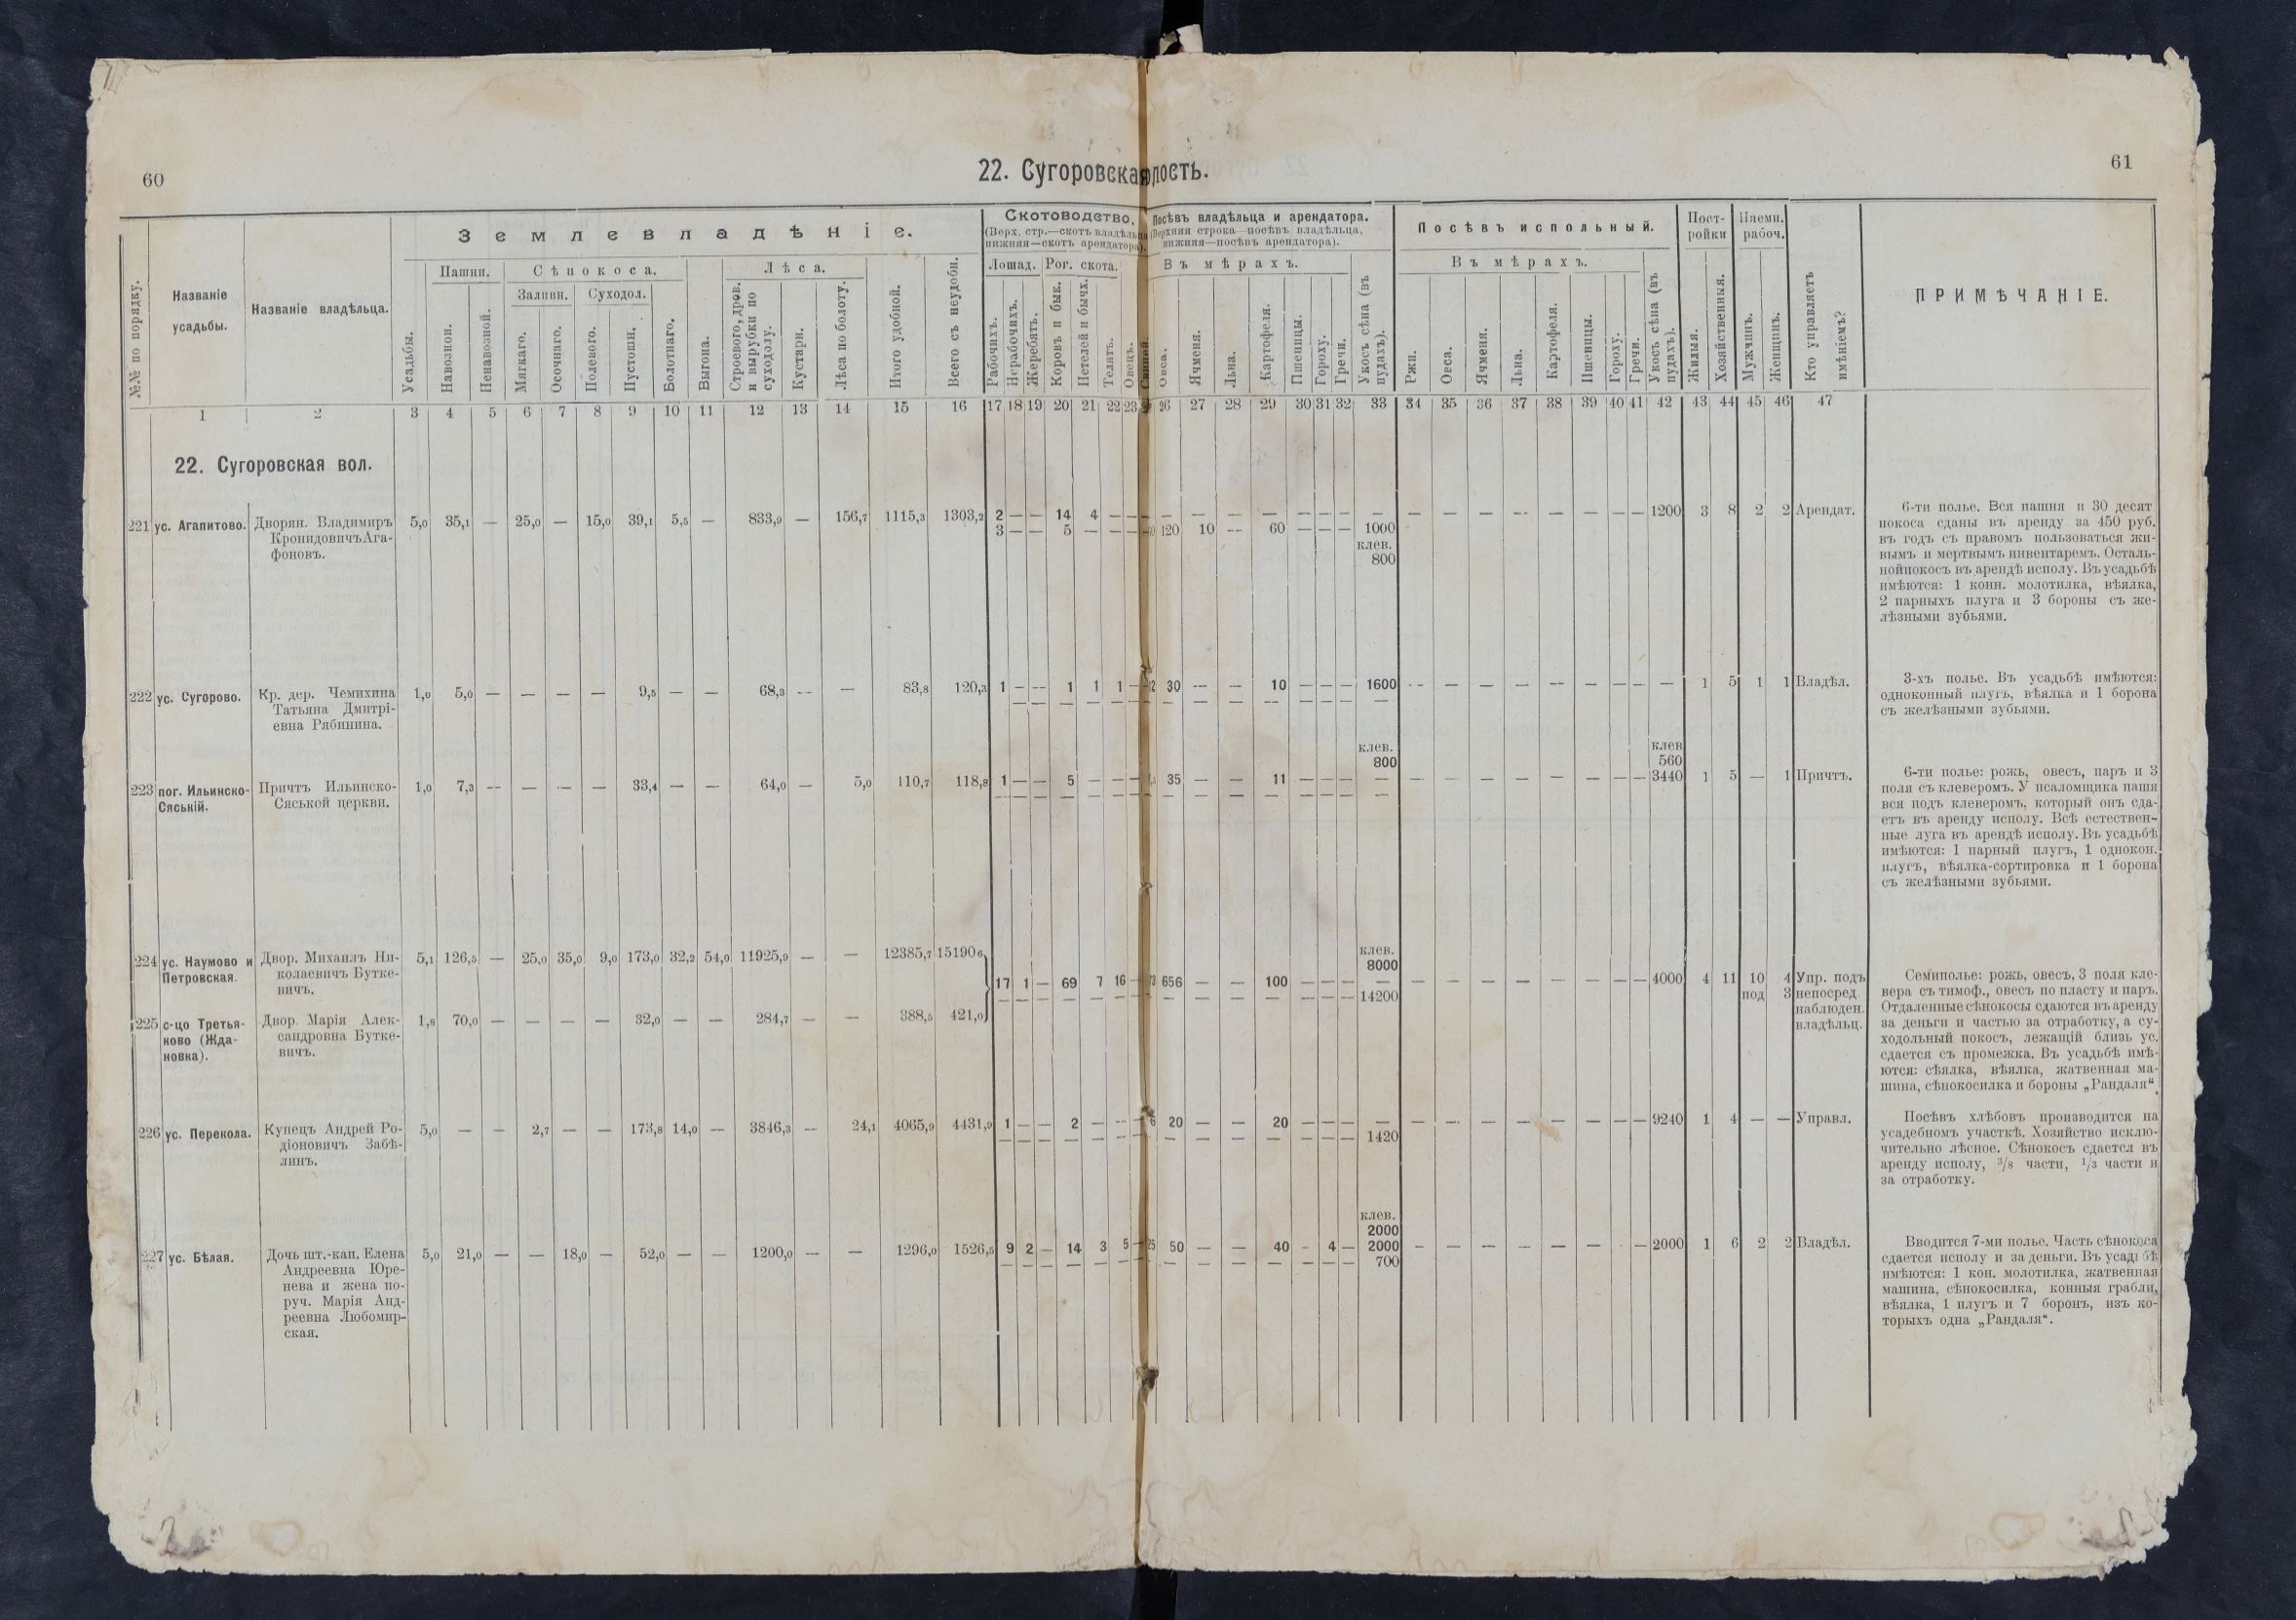 60
22. Сугоровская
лость.
61
№№ по порядку.
Названіе
усадьбы.
Названіе владѣльца.
Землевладѣніе.
Усадьбы.
Пашни.
Навозной.
Ненавозной.
Сѣнокоса.
Заливн.
Суходол.
Мягкаго.
Осочнаго.
Полевого.
Пустоши.
Болотнаго.
Выгона.
Лѣса.
Строевого, дров.
и вырубки по
суходолу.
Кустарн.
Лѣса по болоту.
Итого удобной.
Всего съ неудобн.
Скотоводство.
(Верх. стр.—скотъ владѣльца
нижняя—скотъ арендатора).
Лошад.
Рог. скота.
Рабочихъ.
Нерабочихъ.
Жеребятъ.
Коровъ и бык.
Нетелей и бычх.
Телятъ.
Овецъ.
Свиней.
Посѣвъ владѣльца и арендатора.
(Верхняя строка—посѣвъ владѣльца,
нижняя—посѣвъ арендатора).
Въ мѣрахъ.
Овса.
Ячменя.
Льна.
Картофеля.
Пшеницы.
Гороху.
Гречи.
Укосъ сѣна (въ
пудахъ).
Посѣвъ испольный.
Въ мѣрахъ.
Ржи.
Овса.
Ячменя.
Льна.
Картофеля.
Пшеницы.
Гороху.
Гречи.
Укосъ сѣна (въ
пудахъ).
Пост-
ройки
Жилыя.
Хозяйственныя.
Наемн.
рабоч.
Мужчинъ.
Женщинъ.
Кто управляетъ
имѣніемъ?
ПРИМѢЧАНІЕ.
1 2 3 4 5 6 7 8 9 10 11 12 13 14 15 16 17 18 19 20 21 22 23 26 27 28 29 30 31 32 33 34 35 36 37 38 39 40 41 42 43 44 45 46 47
22. Сугоровская вол.
221 ус. Агапитово. Дворян. Владимиръ 5,0 35,1 — 25,0 — 15,0 39,1 5,5 — 833,9 — 156,7 1115,3 1303,2 2 — — 14 4 — — — — — — — — — — 1200 3 8 2 2 Арендат.
КронидовичъАга- 3 — — 5 — — — 120 10 — 60 — — — 1000
фоновъ. клев.
800
6-ти полье. Вся пашня и 30 десят
покоса сданы въ аренду за 450 руб.
въ годъ съ правомъ пользоваться жи-
вымъ и мертвымъ инвентаремъ. Осталь-
нойпокосъ въ арендѣ исполу. Въ усадьбѣ
имѣются: 1 конн. молотилка, вѣялка,
2 парныхъ плуга и 3 бороны съ же-
лѣзными зубьями.
222 ус. Сугорово. Кр. дер. Чемихина 1,0 5,0 — — — — 9,5 — — 68,3 — — 83,8 120,3 1 — — 1 1 1 — 30 — — 10 — — — 1600 — — — — — — — — — 1 5 1 1 Владѣл.
Татьяна Дмитрі-
евна Рябинина.
3-хъ полье. Въ усадьбѣ имѣются:
одноконный плугъ, вѣялка и 1 борона
съ желѣзными зубьями.
клев. клев
800 560
223 пог. Ильинско- Причтъ Ильинско- 1,0 7,3 — — — — 33,4 — — 64,0 — 5,0 110,7 118,8 1 — — 5 — — — 35 — — 11 — — — — — — — — — — — — 3440 1 5 — 1 Причтъ.
Сяській. Сяськой церкви.
6-ти полье: рожь, овесъ, паръ и 3
поля съ клеверомъ. У псаломщика пашня
вся подъ клеверомъ, который онъ сда-
етъ въ аренду исполу. Всѣ естествен-
ные луга въ арендѣ исполу. Въ усадьбѣ
имѣются: 1 парный плугъ, 1 однокон.
плугъ, вѣялка-сортировка и 1 борона
съ желѣзными зубьями.
224 ус. Наумово и Двор. Михаилъ Ни- 5,1 126,5 — 25,0 35,0 9,0 173,0 32,2 54,0 11925,9 — — 12385,7 15190,6 клев.
Петровская. колаевичъ Бутке- 8000
вичъ. 17 1 — 69 7 16 — 656 — — 100 — — — — — — — — — — — — 4000 4 11 10 4 Упр. подъ
14200 под 3 непосред.
наблюден.
владѣльц.
225 с-цо Третья- Двор. Марія Алек- 1,8 70,0 — — — — 32,0 — — 284,7 — — 388,5 421,0
ково (Жда- сандровна Бутке-
новка). вичъ.
Семиполье: рожь, овесъ, 3 поля кле-
вера съ тимоф., овесъ по пласту и паръ.
Отдаленные сѣнокосы сдаются въ аренду
за деньги и частью за отработку, а су-
ходольный покосъ, лежащій близь ус.
сдается съ промежка. Въ усадьбѣ имѣ-
ются: сѣялка, вѣялка, жатвенная ма-
шина, сѣнокосилка и бороны „Рандаля“.
226 ус. Перекола. Купецъ Андрей Ро- 5,0 — — 2,7 — — 173,8 14,0 — 3846,3 — 24,1 4065,9 4431,9 1 — — 2 — — — 6 20 — — 20 — — — — — — — — — — — — 9240 1 4 — — Управл.
діоновичъ Забѣ- 1420
линъ.
Посѣвъ хлѣбовъ производится на
усадебномъ участкѣ. Хозяйство исклю-
чительно лѣсное. Сѣнокосъ сдается въ
аренду исполу, 3/8 части, 1/3 части и
за отработку.
клев.
2000
227 ус. Бѣлая. Дочь шт.-кап. Елена 5,0 21,0 — — 18,0 — 52,0 — — 1200,0 — — 1296,0 1526,5 9 2 — 14 3 5 — 25 50 — — 40 — 4 — 2000 — — — — — — — — 2000 1 6 2 2 Владѣл.
Андреевна Юре- 700
нева и жена по-
руч. Марія Анд-
реевна Любомир-
ская.
Вводится 7-ми полье. Часть сѣнокоса
сдается исполу и за деньги. Въ усадьбѣ
имѣются: 1 кон. молотилка, жатвенная
машина, сѣнокосилка, конныя грабли,
вѣялка, 1 плугъ и 7 боронъ, изъ ко-
торыхъ одна „Рандаля“.